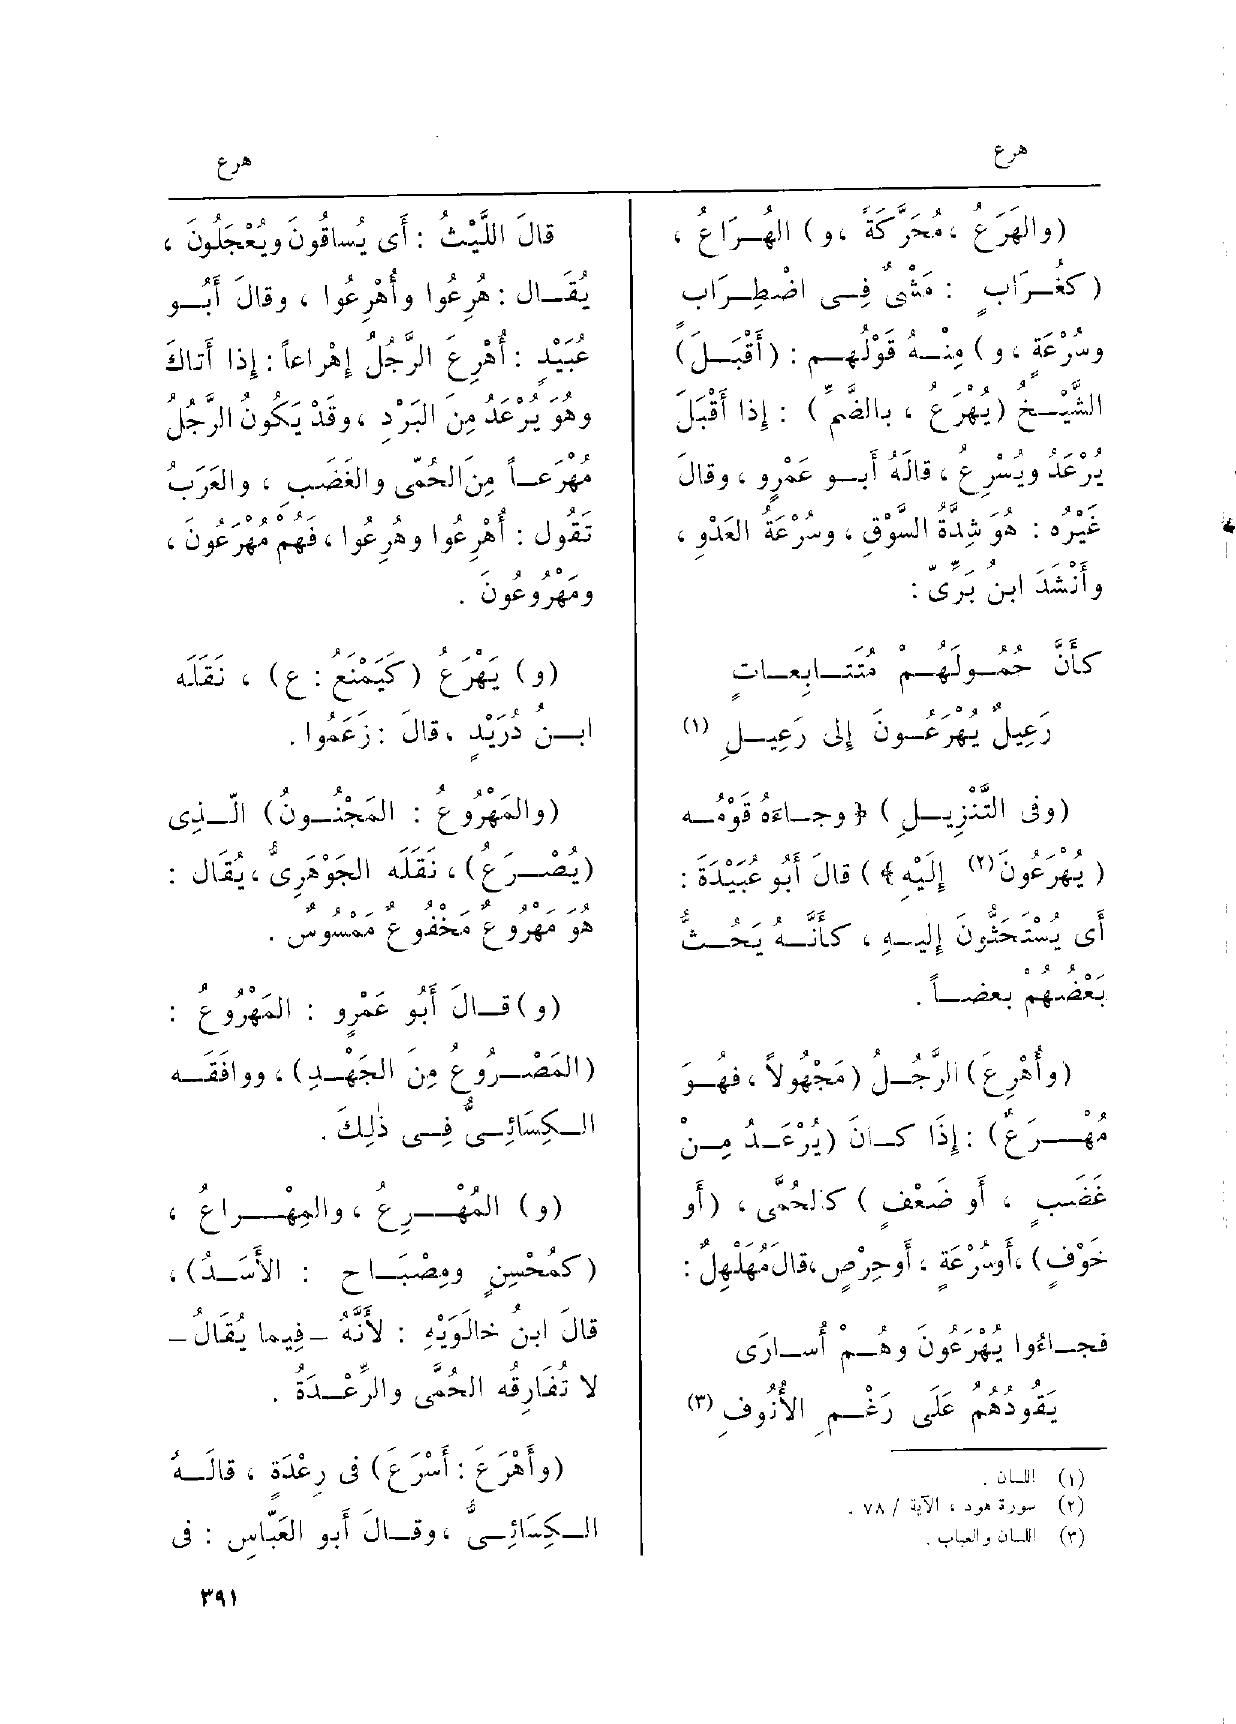 هرع
هرع
(والهَرَعُ ، مُحَرَّكَةً ، و) الهُـرَاعُ ،
(كغُـرَابٍ : مَشْىٌ فِـى اضْطِـرَابٍ
وسُرْعَةٍ ، و) مِنْـهُ قَوْلُهـم : (أَقْبَـلَ)
الشَّيْـخُ (يُهْرَعُ ، بالضَّمِّ) : إِذا أَقْبَلَ
يُرْعَدُ ويُسْرِعُ ، قالَهُ أَبـو عَمْرٍو ، وقالَ
غَيْرُه : هُوَ شِدَّةُ السَّوْقِ ، وسُرْعَةُ العَدْوِ ،
وأَنْشَدَ ابنُ بَرِّىّ :
كأَنَّ حُمُـولَهُـمْ مُتَتَـابِعـاتٍ
رَعِيلٌ يُهْرَعُـونَ إِلى رَعِيـلِ (١)
(وفى التَّنْزِيـلِ) ﴿ وجـاءَهُ قَوْمُـه
(يُهْرَعُونَ (٢) إِلَيْهِ ﴾) قالَ أَبُو عُبَيْدَةَ :
أَى يُسْتَحَثُّونَ إِليـهِ ، كأَنَّـهُ يَحُـثُّ
بَعْضُهُم بعضـاً .
(وأُهْرِعَ) الرَّجُـلُ (مَجْهُولاً ، فهُـوَ
مُهْـرَعٌ) : إِذَا كـانَ (يُرْعَـدُ مِـنْ
غَضَبٍ ، أَو ضَعْفٍ) كالحُمَّى ، (أَو
خَوْفٍ) ، أَوسُرْعَةٍ ، أَوحِرْصٍ ، قالَ مُهَلْهِلٌ :
فجـاءُوا يُهْرَعُونَ وهُـمْ أُسـارَى
يَقُودُهُمُ عَلَى رَغْـمِ الأُنُوفِ (٣)
(١) اللسان .
(٢) سورة هود ، الآية / ٧٨ .
(٣) اللسان والعباب .
قالَ اللَّيْثُ : أَى يُساقُونَ ويُعْجَلُونَ ،
يُقَـال : هُرِعُوا وأُهْرِعُوا ، وقالَ أَبُـو
عُبَيْدٍ : أُهْرِعَ الرَّجُلُ إِهْراعاً : إِذا أَتاكَ
وهُوَ يُرْعَدُ مِنَ البَرْدِ ، وقَدْ يَكُونُ الرَّجُلُ
مُهْرَعـاً مِنَ الحُمَّى والغَضَبِ ، والعَرَبُ
تَقُول : أُهْرِعُوا وهُرِعُوا ، فَهُمْ مُهْرَعُونَ ،
ومَهْرُوعُونَ .
(و) يَهْرَعُ (كَيَمْنَعُ : ع) ، نَقَلَه
ابـنُ دُرَيْدٍ ، قالَ : زَعَمُوا .
(والمَهْرُوعُ : المَجْنُـونُ) الَّـذِى
(يُصْـرَعُ) ، نَقَلَه الجَوْهَرِىُّ ، يُقَال :
هُوَ مَهْرُوعٌ مَخْفُوعٌ مَمْسُوسٌ .
(و) قـالَ أَبُو عَمْرٍو : المَهْرُوعُ :
(المَصْـرُوعُ مِنَ الجَهْـدِ) ، ووافَقَـه
الـكِسَائِـىُّ فِـى ذٰلِكَ .
(و) المُهْـرِعُ ، والمِهْـراعُ ،
(كمُحْسِنٍ ومِصْبَـاحٍ : الأَسَـدُ) ،
قالَ ابنُ خالَوَيْهِ : لأَنَّهُ - فِيما يُقَالُ -
لا تُفَارِقُه الحُمَّى والرِّعْـدَةُ .
(وأَهْرَعَ : أَسْرَعَ) فى رِعْدَةٍ ، قالَـهُ
الـكِسَائِـىُّ ، وقـالَ أَبو العَبَّاسِ : فى
٣٩١